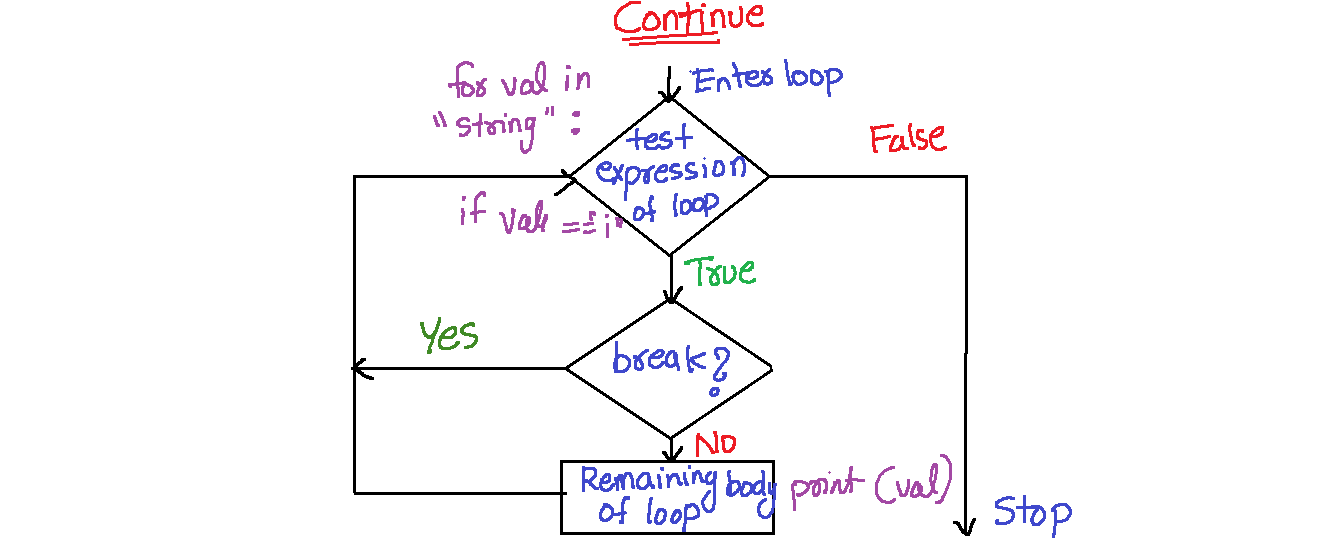 Continue
Enter loop
for val in
"string" :
test
expression
of loop
False
if val == "i"
True
Yes
break?
No
Remaining body
of loop
print (val)
Stop